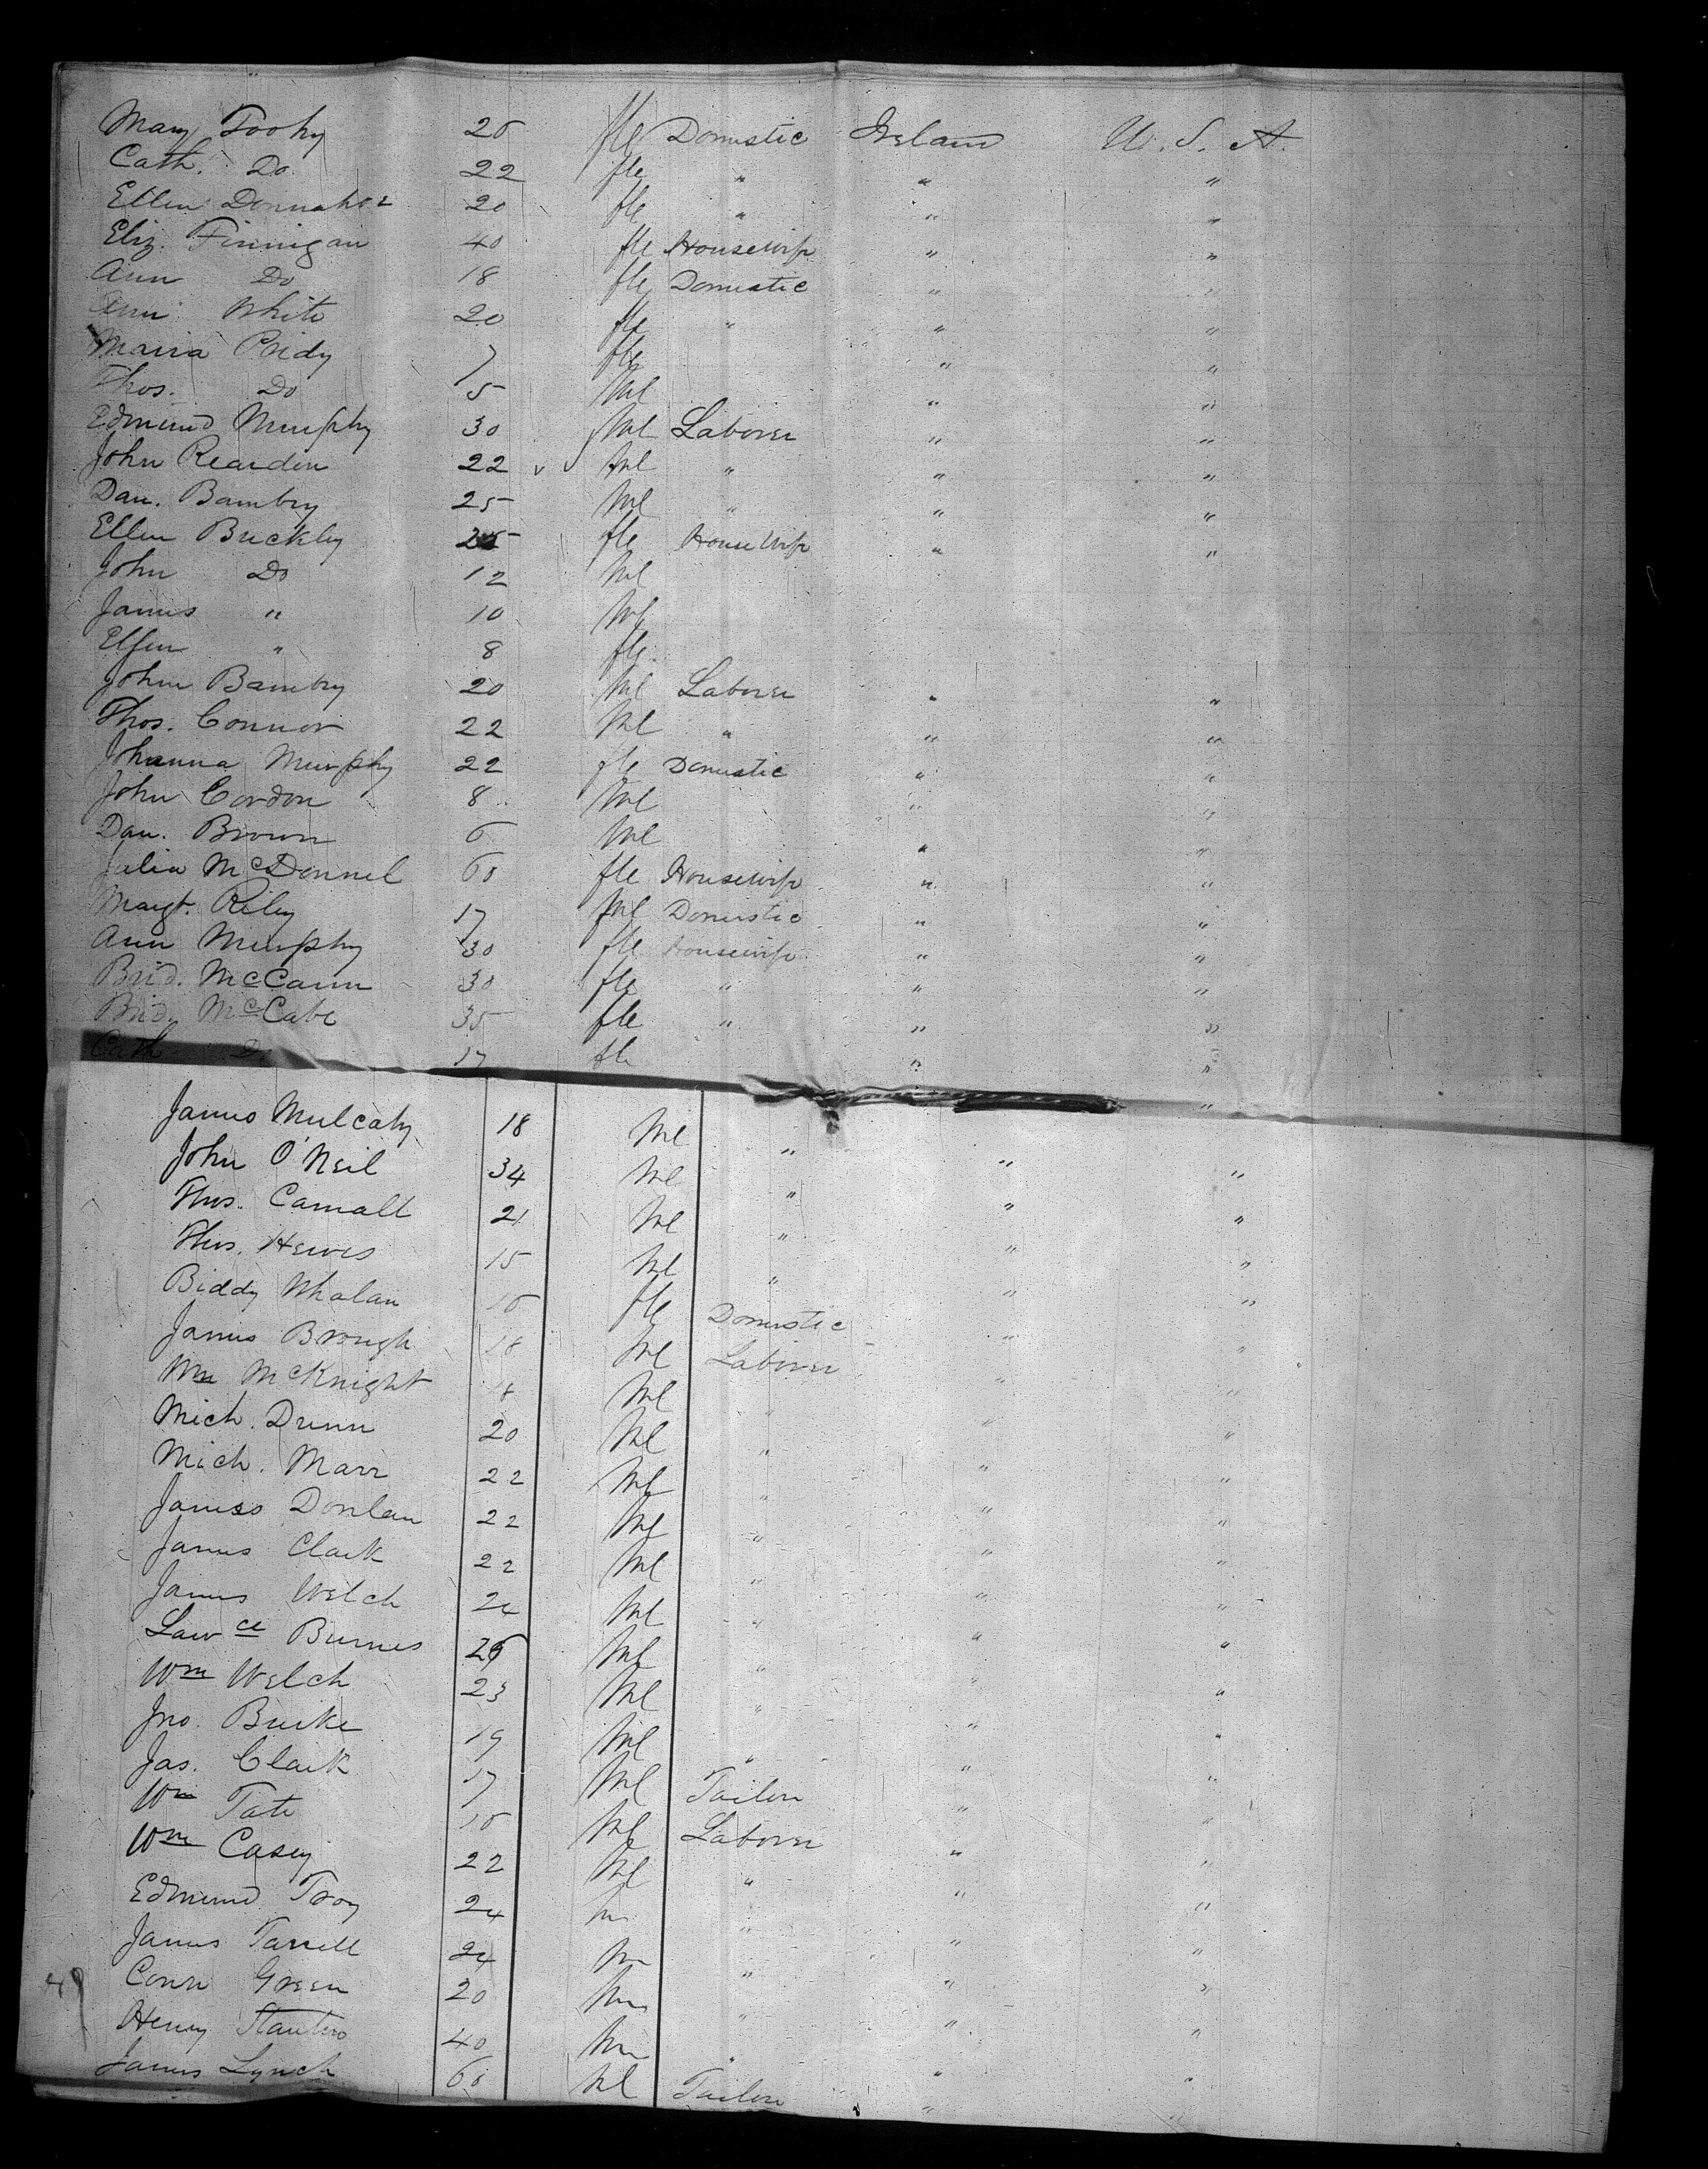 Mary Toohy 20 fle Domestic Ireland U. S. A.
Cath. Do 22 fle " " "
Ellen Donnahoe 20 fle " " "
Eliz. Finnigan 40 fle Housewife " "
Ann Do 18 fle Domestic " "
Ann White 20 fle " " "
Maria Pridy 7 fle " "
Thos. Do 5 Ml " "
Edmund Murphy 30 Ml Laborer " "
John Reardon 22 Ml " " "
Dan. Bambry 25 Ml " " "
Ellen Buckley fle House Wife " "
John Do 12 Ml
James " 10 Ml
Ellen " 8 fle
John Bambry 20 Ml Laborer " "
Thos. Connor 22 Ml " " "
Johanna Murphy 22 fle Domestic " "
John Cordon 8 Ml " "
Dan. Brown 6 Ml " "
Julia McDonnel 60 fle Housewife " "
Margt. Riley 17 Domestic " "
Ann Murphy 30 fle Housewife " "
Brid. McCann 30 fle " " "
Brid. McCabe 35 fle " " "
Cath Do 17 fle " "
"
James Mulcahy 18 Ml " " "
John O'Neil 34 Ml " " "
Thos. Camall 21 Ml " " "
Thos. Hewes 15 Ml " " "
Biddy Whalan fle Domestic " "
James Brough 18 Ml Laborer " "
Wm McKnight 18 Ml " " "
Mich. Dunn 20 Ml " " "
Mich. Marr 22 Ml " " "
James Donlan 22 Ml " " "
James Clark 22 Ml " " "
James Welch 24 Ml " " "
Lawce Burnes Ml " " "
Wm Welch 23 Ml " " "
Jno. Burke 19 Ml " " "
Jas. Clark 17 Ml Tailor " "
Wm Tate Ml Laborer " "
Wm Casey 22 Ml " " "
Edmund Troy 24 M " " "
James Farrell 24 M " " "
Conn Green 20 M " " "
Henry 40 M " " "
James Lynch 60 Ml Tailor " "
49